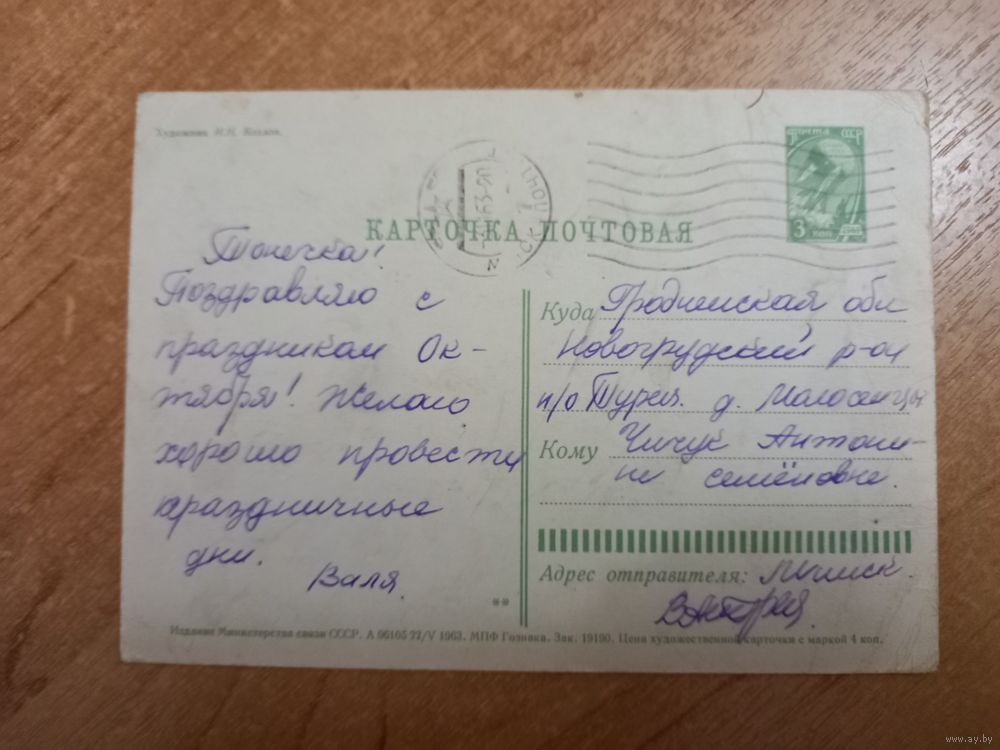 Художник И.Н. Козлов.
ПОЧТА СССР
3 коп.
КАРТОЧКА ПОЧТОВАЯ
Тонечка!
Поздравляю с
праздником Ок-
тября! Желаю
хорошо провести
праздничные
дни.
Валя.
Куда Гродненская обл
Новогрудский р-он
п/о Турец. д. Малосельцы
Кому Чичук Антони-
не семёновне.
Адрес отправителя: Минск.
**
Издание Министерства связи СССР. А 06105 22/V 1963. МПФ Гознака. Зак. 19190. Цена художественной карточки с маркой 4 коп.
www.ay.by